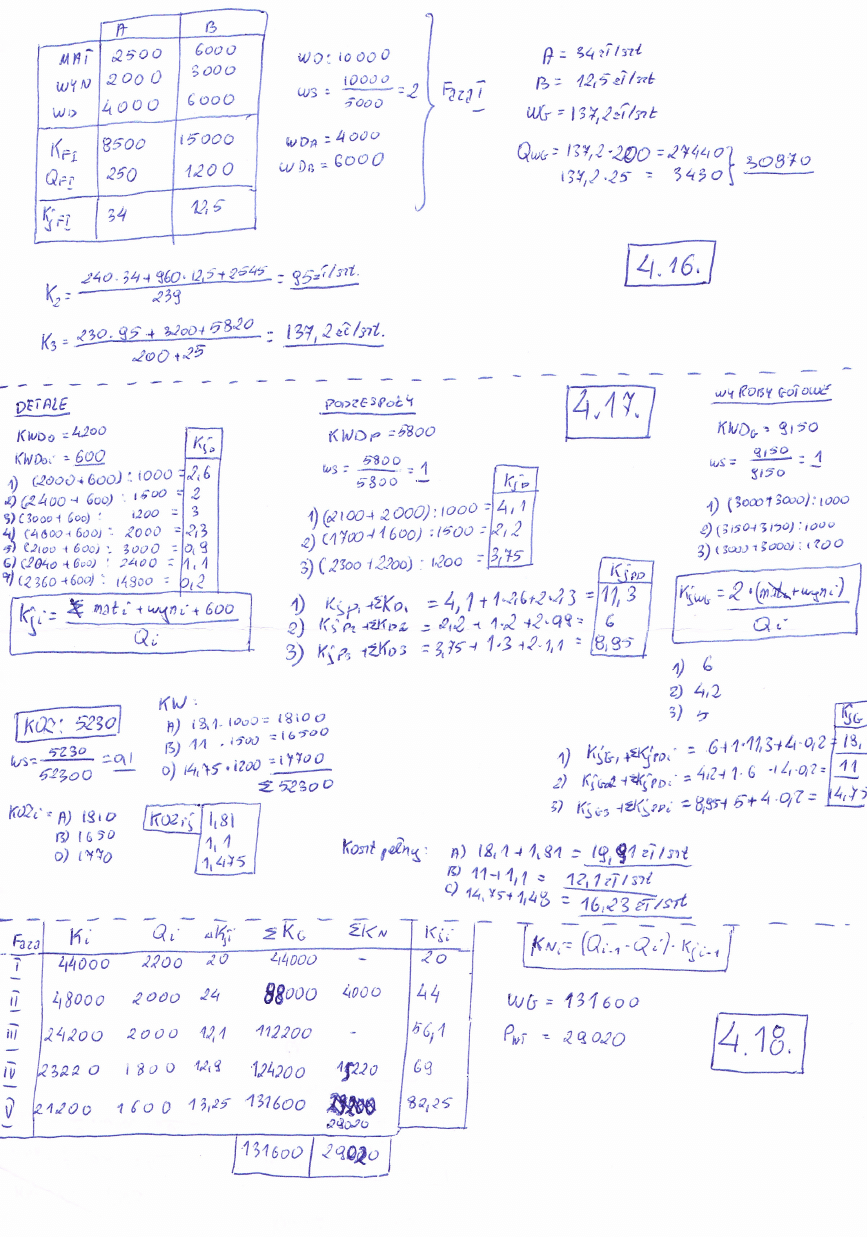 A B
MAT 2500 6000
WYN 2000 3000
WD 4000 6000
KFI 8500 15000
QFI 250 1200
KjFI 34 12,5
WD: 10000
WS = 10000 / 5000 = 2
WDA = 4000
WDB = 6000
Faza I
A = 34 zł/szt
B = 12,5 zł/szt
WG = 137,2 zł/szt
QWG = 137,2 · 200 = 27440
137,2 · 25 = 3430
30870
K2 = 240 · 34 + 960 · 12,5 + 2545 / 239 = 95 zł/szt.
K3 = 230 · 95 + 3200 + 5820 / 200 + 25 = 137,2 zł/szt.
4.16.
DETALE
KWDD = 4200
KWDDi = 600
KjD
1) (2000 + 600) : 1000 = 2,6
2) (2400 + 600) : 1500 = 2
3) (3000 + 600) : 1200 = 3
4) (4000 + 600) : 2000 = 2,3
5) (2100 + 600) : 3000 = 0,9
6) (2040 + 600) : 2400 = 1,1
7) (2360 + 600) : 14800 = 0,2
Kji = Σ mati + wyni + 600 / Qi
PODZESPOŁY
KWDP = 5800
WS = 5800 / 5800 = 1
KjP
1) (2100 + 2000) : 1000 = 4,1
2) (1700 + 1600) : 1500 = 2,2
3) (2300 + 2200) : 1200 = 3,75
KjPD
1) KjP1 + ΣKD1 = 4,1 + 1·2,6 + 2·2,3 = 11,3
2) KjP2 + ΣKD2 = 2,2 + 1·2 + 2·99 = 6
3) KjP3 + ΣKD3 = 3,75 + 1·3 + 2·1,1 = 8,95
4.17.
WYROBY GOTOWE
KWDG = 9150
WS = 9150 / 9150 = 1
1) (3000 + 3000) : 1000
2) (3150 + 3150) : 1000
3) (3000 + 3000) : 1200
KjWG = 2 · (mat + wyni) / Qi
1) 6
2) 4,2
3) 5
KjG
1) KjG1 + ΣKjPDi = 6 + 1·11,3 + 4·0,2 = 18,
2) KjG2 + ΣKjPDi = 4,2 + 1·6 + 4·0,2 = 11
3) KjG3 + ΣKjPDi = 8,95 + 5 + 4·0,2 = 14,75
KOZ: 5230
WS = 5230 / 52300 = 0,1
KW:
A) 18,1 · 1000 = 18100
B) 11 · 1500 = 16500
C) 14,75 · 1200 = 17700
Σ 52300
KOZi = A) 1810
B) 1650
C) 1770
KOZij 1,81
1,1
1,475
Koszt pełny: A) 18,1 + 1,81 = 19,91 zł/szt
B) 11 + 1,1 = 12,1 zł/szt
C) 14,75 + 1,48 = 16,23 zł/szt
Faza Ki Qi ΔKji ΣKG ΣKN Kji
I 44000 2200 20 44000 - 20
II 48000 2000 24 88000 4000 44
III 24200 2000 12,1 112200 - 56,1
IV 23220 1800 12,9 124200 15220 69
V 21200 1600 13,25 131600 29020 82,25
131600 29020
KNi = (Qi-1 - Qi) · Kji-1
WG = 131600
PWT = 29020
4.18.